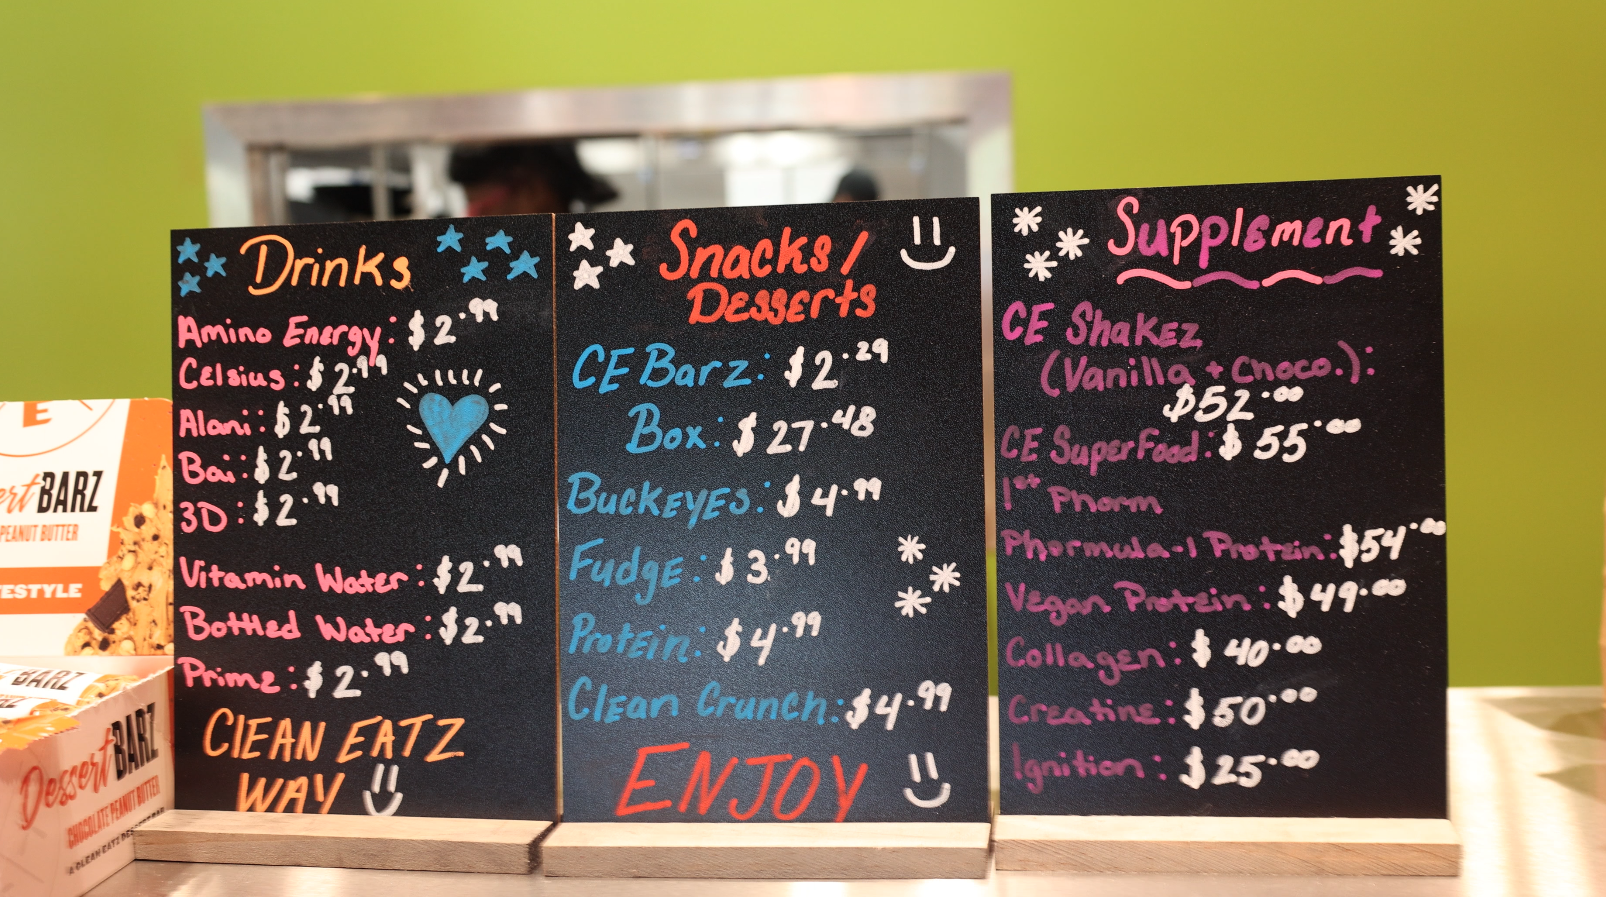 Drinks
Amino Energy: $2.99
Celsius: $2.99
Alani: $2.99
Bai: $2.99
3D: $2.99
Vitamin Water: $2.99
Bottled Water: $2.99
Prime: $2.99
CLEAN EATZ
WAY
Snacks/
Desserts
CE Barz: $2.29
Box: $27.48
Buckeyes: $4.99
Fudge: $3.99
Protein: $4.99
Clean Crunch: $4.99
ENJOY
Supplement
CE Shakez
(Vanilla + Choco.):
$52.00
CE SuperFood: $55.00
1st Phorm
Phormula-1 Protein: $54.00
Vegan Protein: $49.00
Collagen: $40.00
Creatine: $50.00
Ignition: $25.00
E
ert BARZ
PEANUT BUTTER
ESTYLE
BARZ
Dessert BARZ
CHOCOLATE PEANUT BUTTER
A CLEAN EATZ